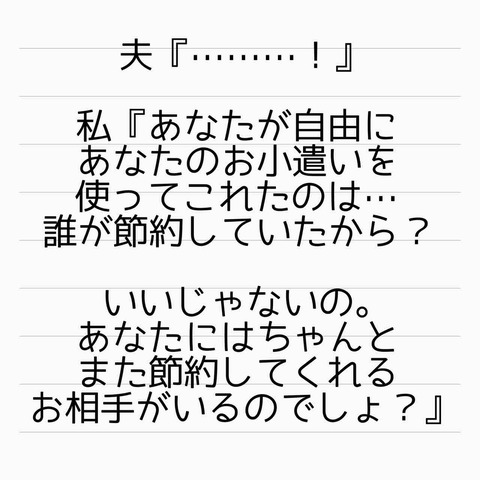 夫『………！』
私『あなたが自由に
あなたのお小遣いを
使ってこれたのは…
誰が節約していたから？
いいじゃないの。
あなたにはちゃんと
また節約してくれる
お相手がいるのでしょ？』